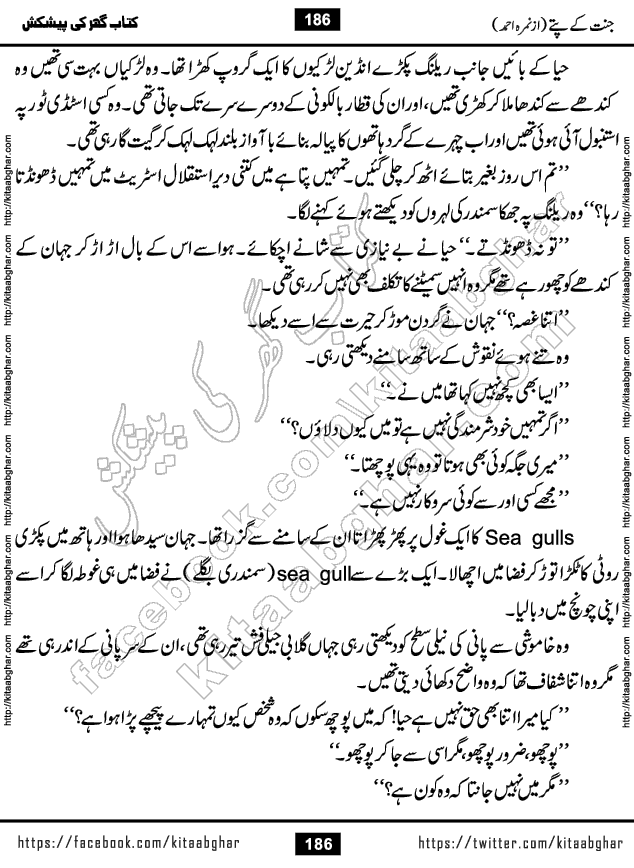 جنت کے پتے (از نمرہ احمد)
186
کتاب گھر کی پیشکش
حیا کے بائیں جانب ریلنگ پکڑے انڈین لڑکیوں کا ایک گروپ کھڑا تھا۔ وہ لڑکیاں بہت سی تھیں وہ
کندھے سے کندھا ملا کر کھڑی تھیں، اور ان کی قطار بالکونی کے دوسرے سرے تک جاتی تھی۔ وہ کسی اسٹڈی ٹور پہ
استنبول آئی ہوئی تھیں اور اب چہرے کے گرد ہاتھوں کا پیالہ بنائے با آواز بلند لہک لہک کر گیت گا رہی تھی۔
’’تم اس روز بغیر بتائے اٹھ کر چلی گئیں۔ تمہیں پتا ہے میں کتنی دیر استقلال اسٹریٹ میں تمہیں ڈھونڈتا
رہا؟‘‘ وہ ریلنگ پہ جھکا سمندر کی لہروں کو دیکھتے ہوئے کہنے لگا۔
’’تو نہ ڈھونڈتے۔‘‘ حیا نے بے نیازی سے شانے اچکائے۔ ہوا سے اس کے بال اڑ اڑ کر جہان کے
کندھے کو چھو رہے تھے مگر وہ انہیں سمیٹنے کا تکلف بھی نہیں کر رہی تھی۔
’’اتنا غصہ؟‘‘ جہان نے گردن موڑ کر حیرت سے اسے دیکھا۔
وہ تنے ہوئے نقوش کے ساتھ سامنے دیکھتی رہی۔
’’ایسا بھی کچھ نہیں کہا تھا میں نے۔‘‘
’’اگر تمہیں خود شرمندگی نہیں ہے تو میں کیوں دلاؤں؟‘‘
’’میری جگہ کوئی بھی ہوتا تو وہ یہی پوچھتا۔‘‘
’’مجھے کسی اور سے کوئی سروکار نہیں ہے۔‘‘
Sea gulls کا ایک غول پر پھڑپھڑاتا ان کے سامنے سے گزرا تھا۔ جہان سیدھا ہوا اور ہاتھ میں پکڑی
روٹی کا ٹکڑا توڑ کر فضا میں اچھالا۔ ایک بڑے سے sea gull (سمندری بگلے) نے فضا میں ہی غوطہ لگا کر اسے
اپنی چونچ میں دبا لیا۔
وہ خاموشی سے پانی کی نیلی سطح کو دیکھتی رہی جہاں گلابی جیلی فش تیر رہی تھی، ان کے سر پانی کے اندر ہی تھے
مگر وہ اتنا شفاف تھا کہ وہ واضح دکھائی دیتی تھیں۔
’’کیا میرا اتنا بھی حق نہیں ہے حیا! کہ میں پوچھ سکوں کہ وہ شخص کیوں تمہارے پیچھے پڑا ہوا ہے؟‘‘
’’پوچھو، ضرور پوچھو، مگر اسی سے جا کر پوچھو۔‘‘
’’مگر میں نہیں جانتا کہ وہ کون ہے؟‘‘
http://kitaabghar.com http://kitaabghar.com http://kitaabghar.com http://kitaabghar.com http://kitaabghar.com http://kitaabghar.com
http://kitaabghar.com http://kitaabghar.com http://kitaabghar.com http://kitaabghar.com http://kitaabghar.com http://kitaabghar.com
کتاب گھر کی پیشکش
facebook.com\kitaabghar
kitaabghar.com
https://facebook.com/kitaabghar
186
https://twitter.com/kitaabghar